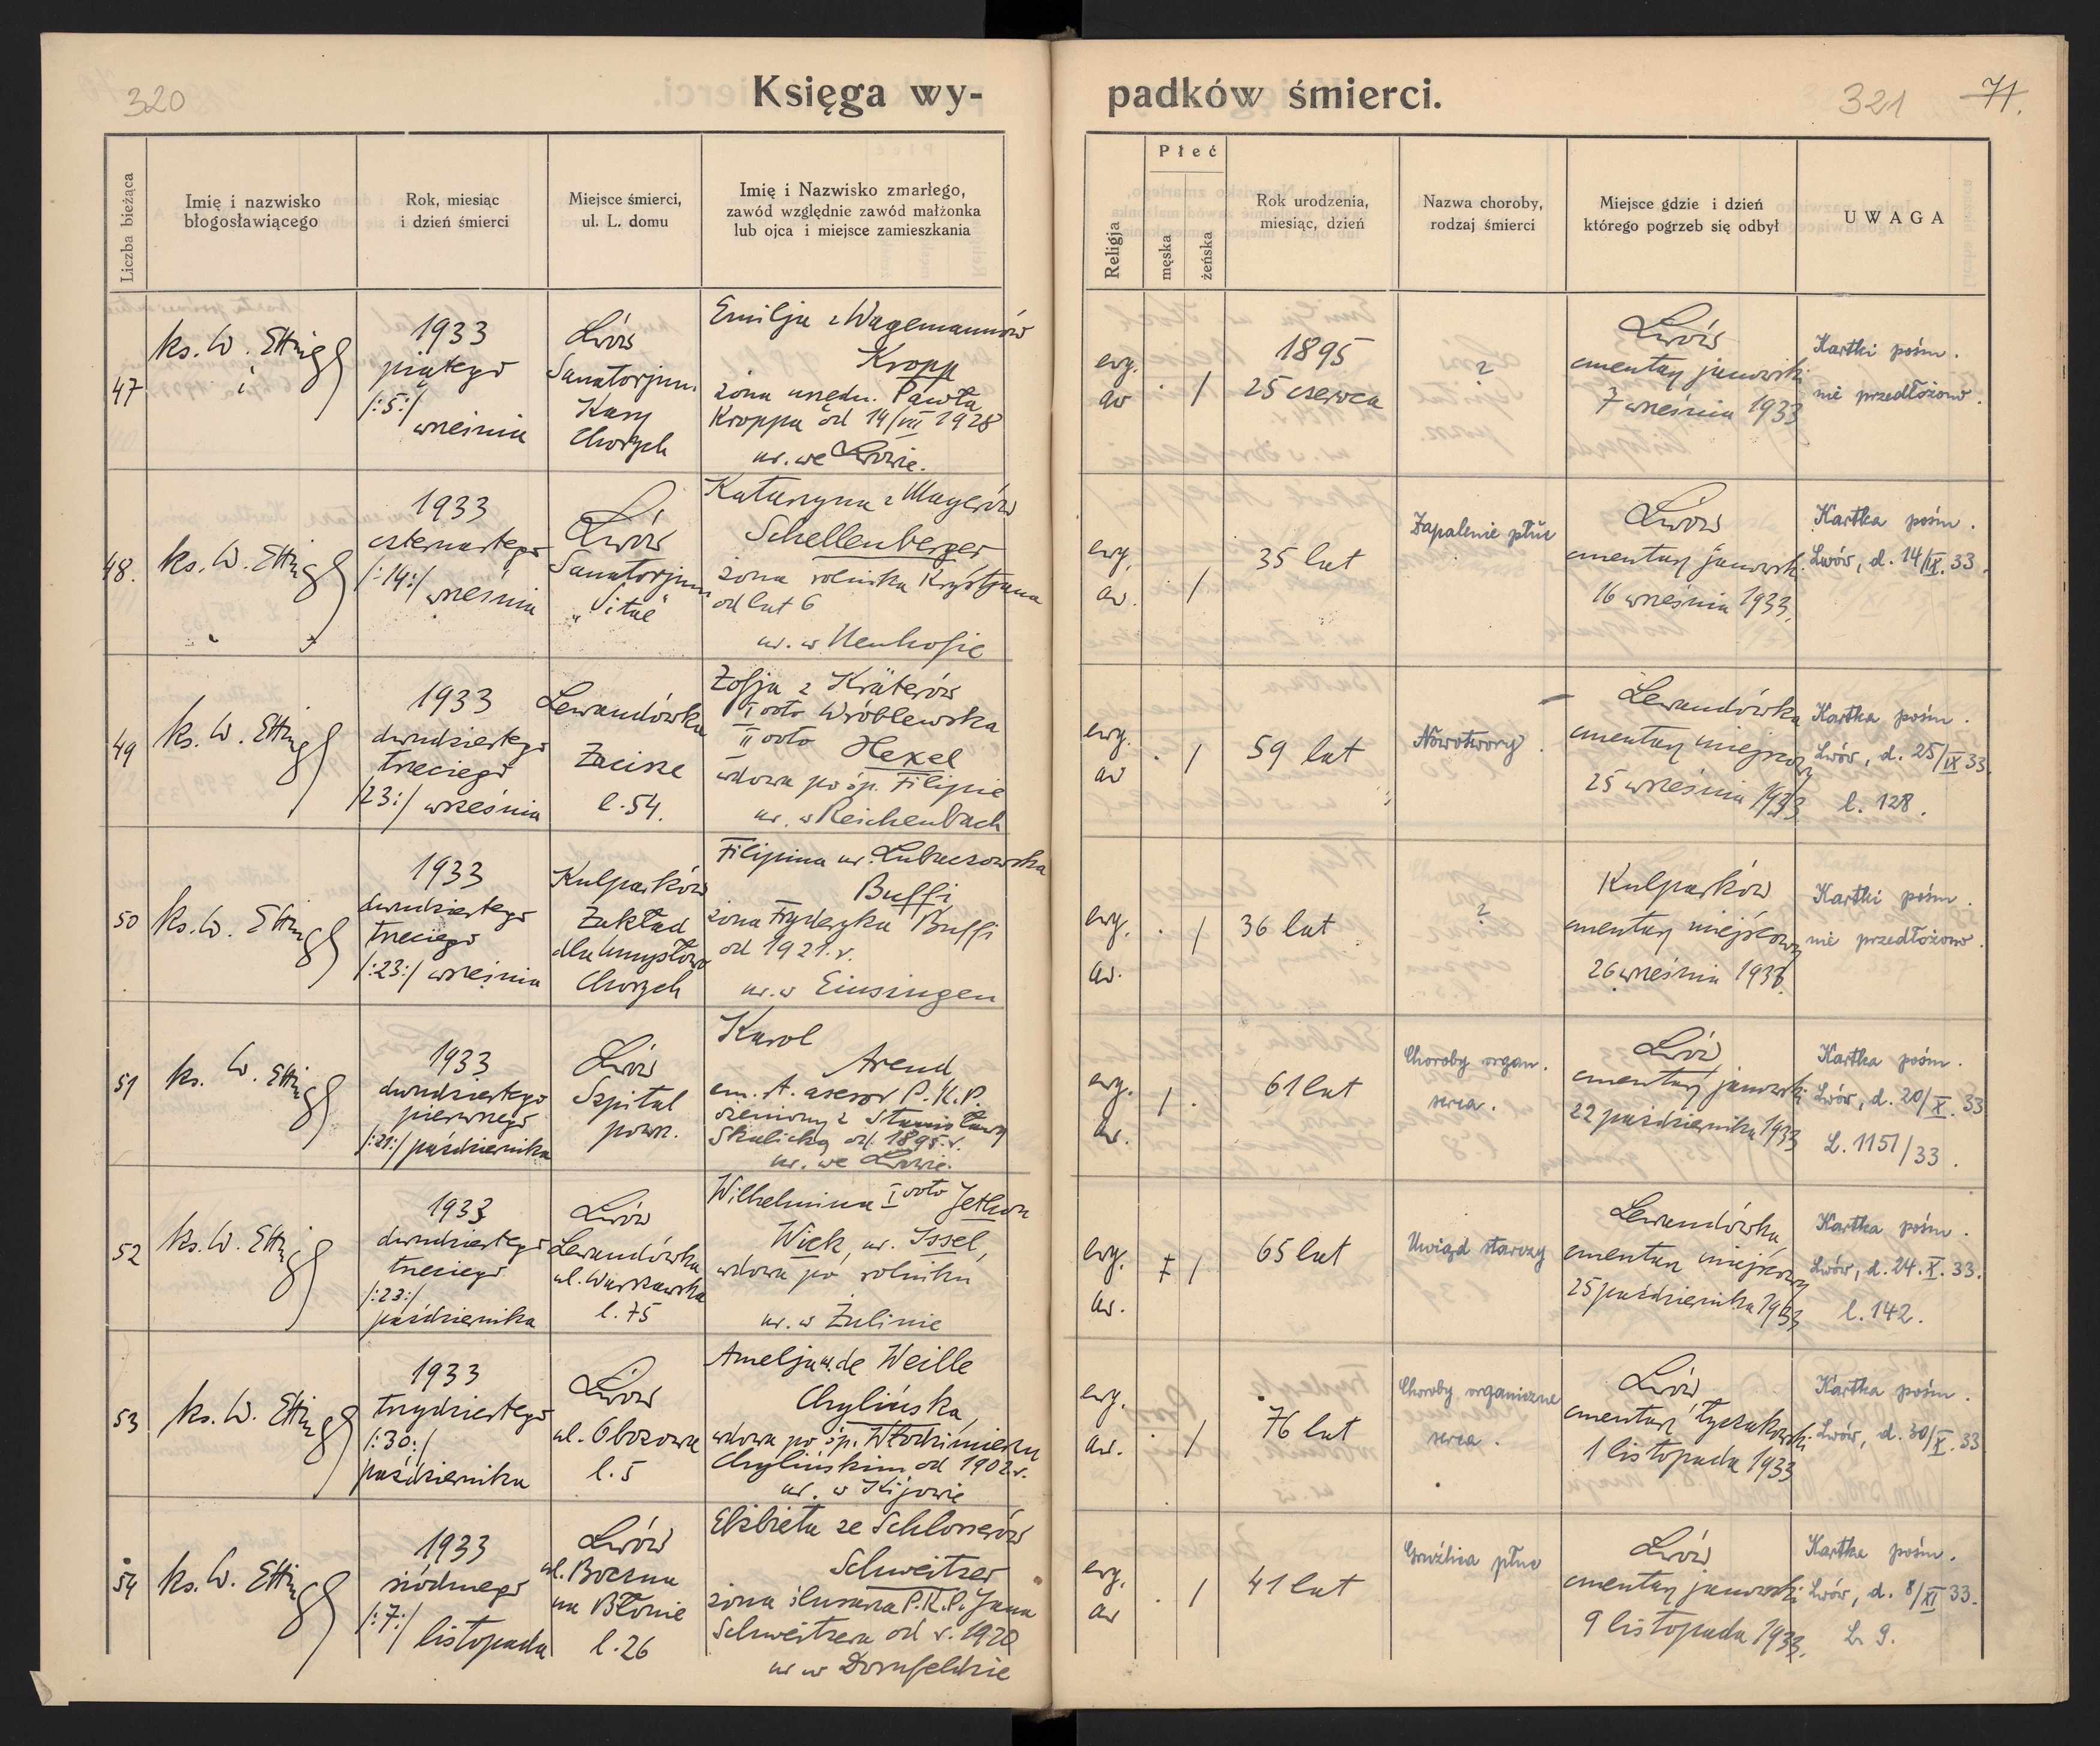 320
Księga wy-
padków śmierci.
321
71.
Liczba bieżąca
Imię i nazwisko
błogosławiącego
Rok, miesiąc
i dzień śmierci
Miejsce śmierci,
ul. L. domu
Imię i Nazwisko zmarłego,
zawód względnie zawód małżonka
lub ojca i miejsce zamieszkania
Religja
Płeć
męska
żeńska
Rok urodzenia,
miesiąc, dzień
Nazwa choroby,
rodzaj śmierci
Miejsce gdzie i dzień
którego pogrzeb się odbył
UWAGA
47
ks. W. Etting
1933
piątego
/:5:/
września
Lwów
Sanatorjum
Kasy
Chorych
Emilja z Wagemannów
Kropp
żona urzędn. Pawła
Kroppa od 14/VII 1928
ur. we Lwowie.
ewg.
av
. /
1895
25 czerwca
?
Lwów
cmentarz janowski
7 września 1933
Kartki pośm.
nie przedłożono.
48.
ks. W. Etting
1933
czternastego
/:14:/
września
Lwów
Sanatorjum
Katarzyna z Mayerów
Schellenberger
żona rolnika Krystjana
od lat 6
ur. w Neuhofie
ewg.
av.
/
35 lat
Zapalenie płuc
Lwów
cmentarz janowski
16 września 1933.
Kartka pośm.
Lwów, d. 14/IX. 33.
49
ks. W. Etting
1933
dwudziestego
trzeciego
/23:/ września
Lewandówka
Zacisze
l. 54.
Zofja z Kräterów
I voto Wróblewska
II voto Hexel
wdowa po śp. Filipie
ur. w Reichenbach
ewg.
av
. /
59 lat
Nowotwory.
Lewandówka
cmentarz miejscowy
25 września 1933
Kartka pośm.
Lwów, d. 25/IX 33.
l. 128.
50
ks. W. Etting
1933
dwudziestego
trzeciego
/:23:/ września
Kulparków
Zakład
dla Umysłowo
Chorych
Filipina ur. Lubaczowska
Buffi
żona Fryderyka Buffi
od 1921. r.
ur. w Einsingen
ewg.
av.
. /
36 lat
?
Kulparków
cmentarz miejscowy
26 września 1933.
Kartki pośm.
nie przedłożono.
51
ks. W. Etting
1933
dwudziestego
pierwszego
/:21:/ października
Lwów
Szpital
powsz.
Karol
Arend
em. st. asesor P.K.P.
ożeniony z Stanisławą
Skalicką od 1895. r.
ur. we Lwowie.
ewg.
av.
/ .
61 lat
Choroby organ.
serca.
Lwów
cmentarz janowski
22 października 1933
Kartka pośm.
Lwów, d. 20/X. 33
L. 1151/33.
52
ks. W. Etting
1933
dwudziestego
trzeciego
/:23:/
października
Lwów
Lewandówka
ul. Warszawska
l. 75
Wilhelmina I voto Jethon
Wick, ur. Issel,
wdowa po rolniku
ur. w Żulinie
ewg.
av.
/
65 lat
Uwiąd starczy
Lewandówka
cmentarz miejscowy
25 października 1933
Kartka pośm.
Lwów, d. 24. X. 33.
l. 142.
53
ks. W. Etting
1933
trzydziestego
/:30:/
października
Lwów
ul. Obozowa
l. 5
Amelja ur. de Weille
Chylińska,
wdowa po śp. Włodzimierzu
Chylińskim od 1902 r.
ur. w Kijowie
ewg.
av.
. /
76 lat
Choroby organiczne
serca.
Lwów
cmentarz łyczakowski
1 listopada 1933
Kartka pośm.
Lwów, d. 30/X. 33
54
ks. W. Etting
1933
siódmego
/:7:/
listopada
Lwów
ul. Boczna
na Błonie
l. 26
Elżbieta ze Schlosserów
Schweitzer
żona ślusarza P.K.P. Jana
Schweitzera od r. 1920
ur w Dornfeldzie
ewg.
av
. /
41 lat
Gruźlica płuc
Lwów
cmentarz janowski
9 listopada 1933.
Kartka pośm.
Lwów, d. 8/XI 33.
L. 9.